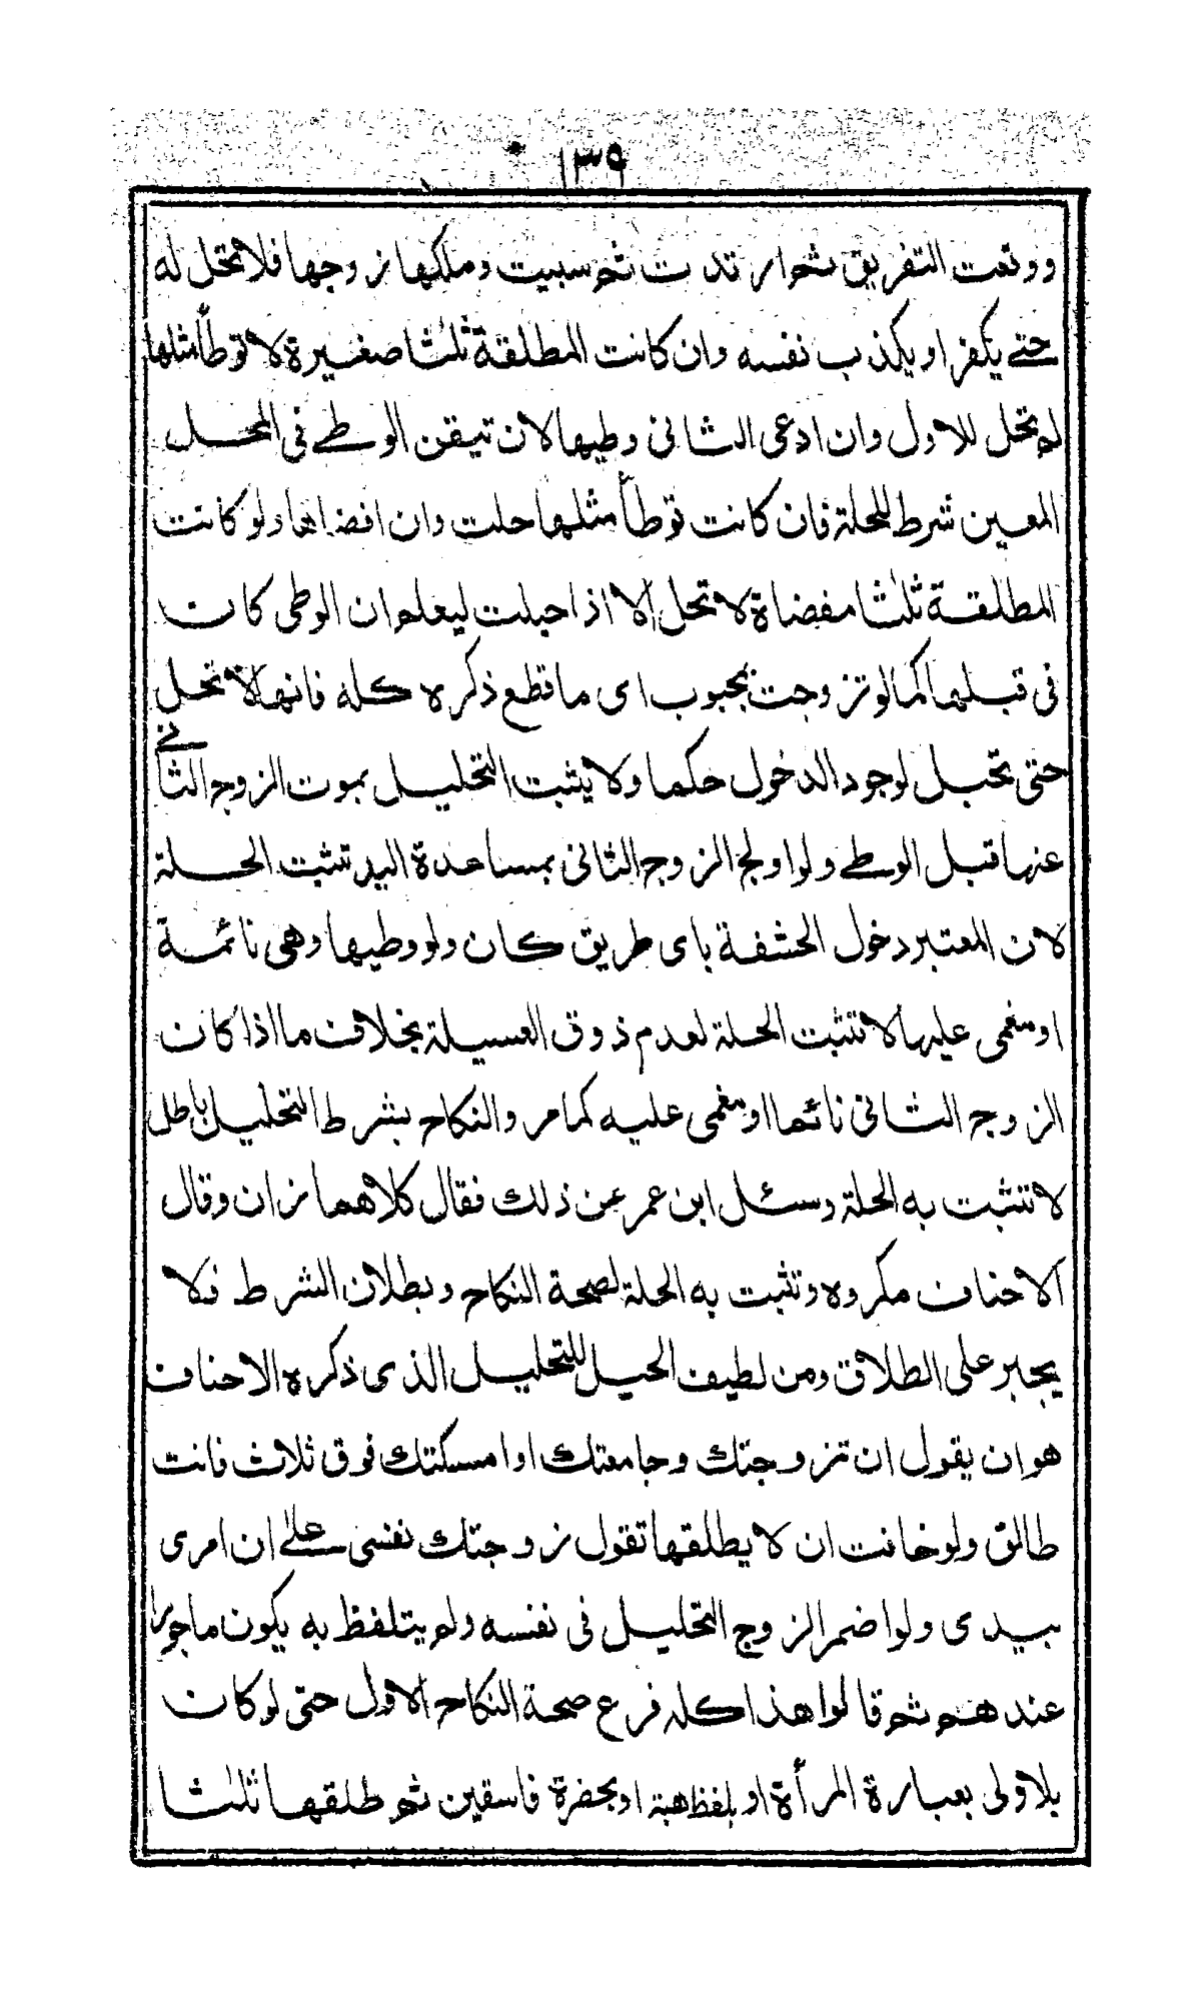 ١٣٩
ووقعت التفريق ثم ارتدت ثم سبيت وملكها زوجها فلا تحل له
حتے يكفر او يكذب نفسه وان كانت المطلقة ثلٰثا صغيرة لا توطأ مثلها
لم تحل للاول وان ادعى الثانى وطيها لان تيقن الوطے فى المحل
المعين شرط للحلة فان كانت توطأ مثلها حلت وان افضاها ولو كانت
المطلقة ثلٰثا مفضاة لا تحل الا اذا حبلت ليعلم ان الوطى كان
فى قبلها كما لو تزوجت بمجبوب اى ما قطع ذكره كله فانها لا تحل
حتى تحبل لوجود الدخول حكما ولا يثبت التحليل بموت الزوج الثانے
عنها قبل الوطے ولو اولج الزوج الثانى بمساعدة اليد تثبت الحلة
لان المعتبر دخول الحشفة باى طريق كان ولو وطيها وهى نائمة
او مغمى عليها لا تثبت الحلة لعدم ذوق العسيلة بخلاف ما اذا كان
الزوج الثانى نائما او مغمى عليه كما مر والنكاح بشرط التحليل باطل
لا تثبت به الحلة وسئل ابن عمر عن ذلك فقال كلاهما زان وقال
الاحناف مكروه وتثبت به الحلة لصحة النكاح وبطلان الشرط فلا
يجبر على الطلاق ومن لطيف الحيل للتحليل الذى ذكره الاحناف
هو ان يقول ان تزوجتك وجامعتك او امسكتك فوق ثلاث فانت
طالق ولو خافت ان لا يطلقها تقول زوجتك نفسى علےٰ ان امرى
بيدى ولو اضمر الزوج التحليل فى نفسه ولم يتلفظ به يكون ماجورا
عندهم ثم قالوا هذا كله فرع صحة النكاح الاول حتى لو كان
بلا ولى بعبارة المرأة او بلفظ هبة او بحضرة فاسقين ثم طلقها ثلٰثا